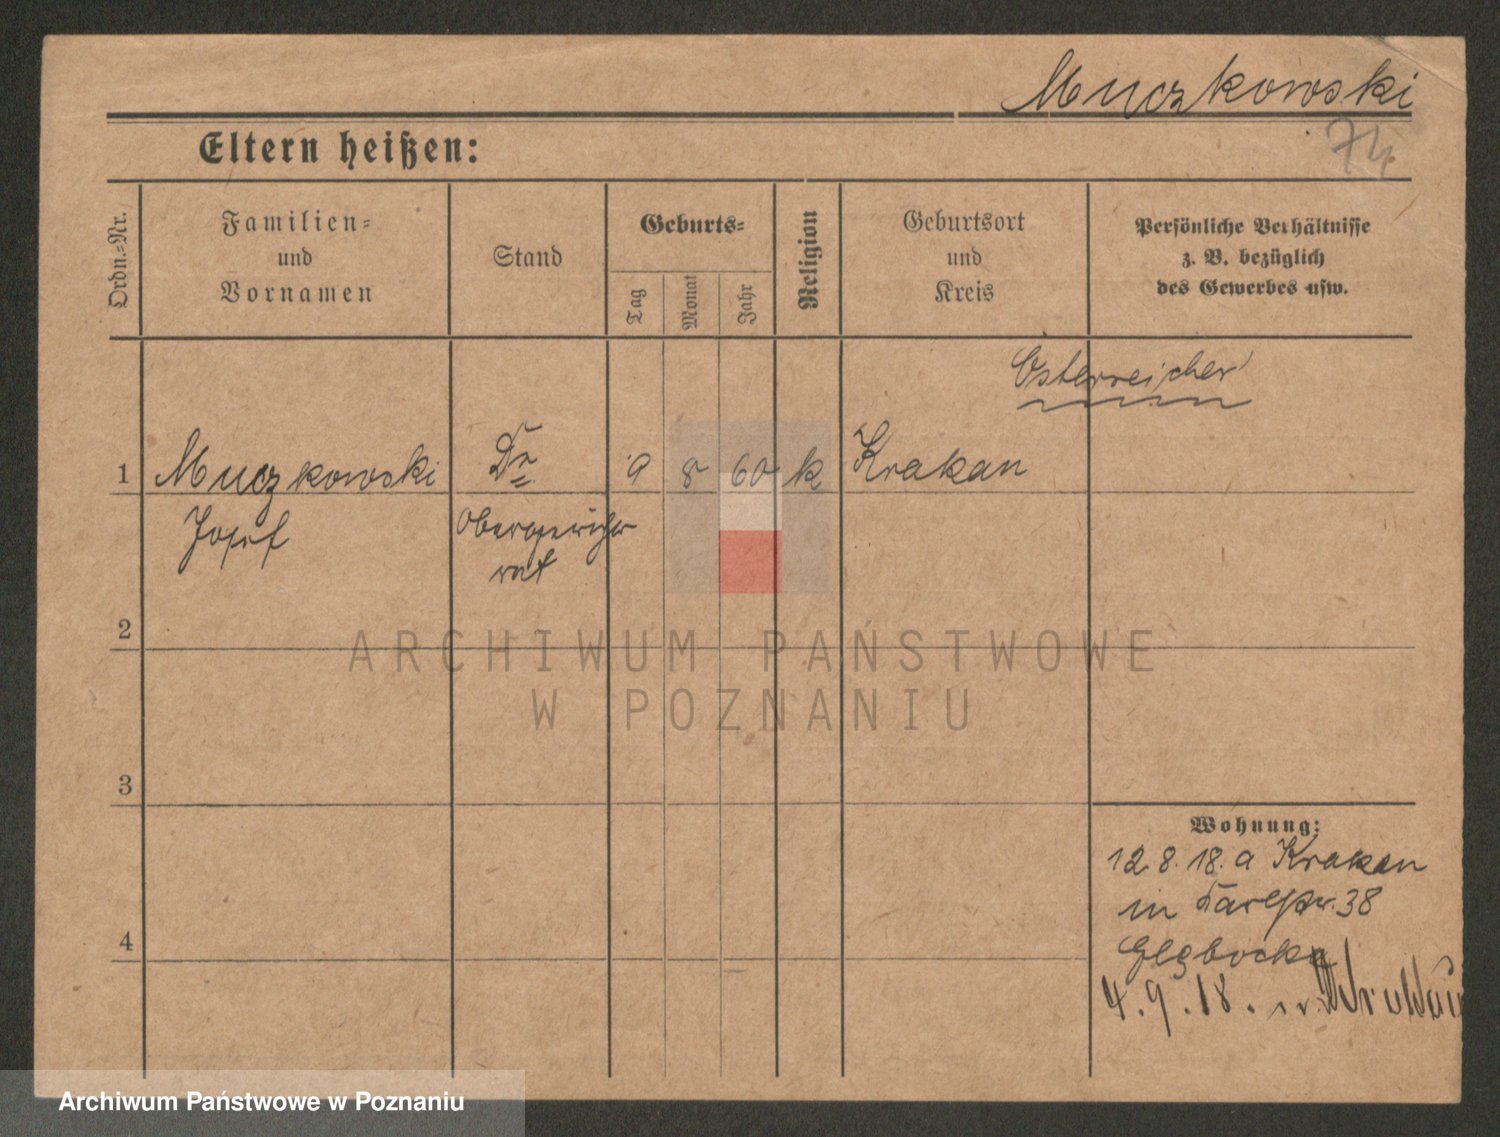 Muczkowski
74
Eltern heißen:
Ordn.-Nr.
Familien-
und
Vornamen
Stand
Geburts-
Tag
Monat
Jahr
Religion
Geburtsort
und
Kreis
Persönliche Verhältnisse
z. B. bezüglich
des Gewerbes usw.
Österreicher
1 Muczkowski Dr 9 8 60 k Krakau
Josef Obergerichts
rat
2
ARCHIWUM PAŃSTWOWE
W POZNANIU
3
Wohnung:
12.8.18. a Krakau
in Karlstr. 38
4
4.9.18. n.
Archiwum Państwowe w Poznaniu